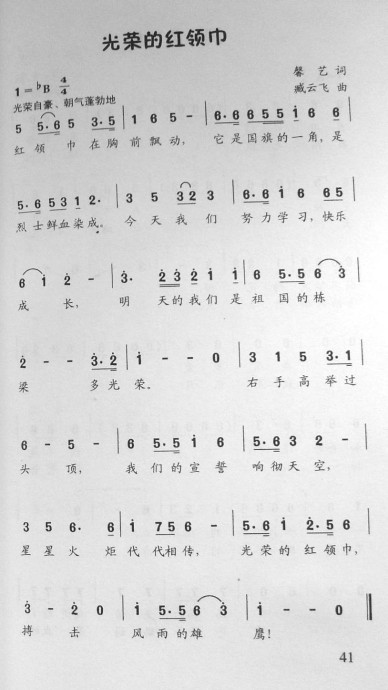 光荣的红领巾
1=♭B 4/4
馨 艺 词
光荣自豪、朝气蓬勃地
臧云飞 曲
5 5·6 5 3·5 | 1 6 5 - | 6·6 6 5 5 1 | 6·6 5 5 6
红 领 巾 在胸 前飘动， 它 是国旗的 一角，是
5·6 5 3 1 2· | 3 5 3 2 3 | 6·6 1 6 6 5
烈士鲜血染成。今 天 我 们 努力学习，快乐
6 1 2 - | 3· 2 3 2 1 1 | 6 5·5 6 3
成 长， 明 天的我们 是 祖 国的 栋
2 - - 3·2 | 1 - - 0 | 3 1 5 3·1
梁 多光荣。 右 手 高 举过
6 - 5 - | 6 5·5 1 6 | 5·6 3 2 -
头 顶， 我 们的 宣 誓 响彻天空，
3 5 6· 6 | 1 7 5 6 - | 5·6 1 2·5
星 星 火 炬 代代相传， 光荣的 红领巾，
3 - 2 0 | 1 5·5 6 3 | 1 - - 0
搏 击 风 雨的雄 鹰！
41